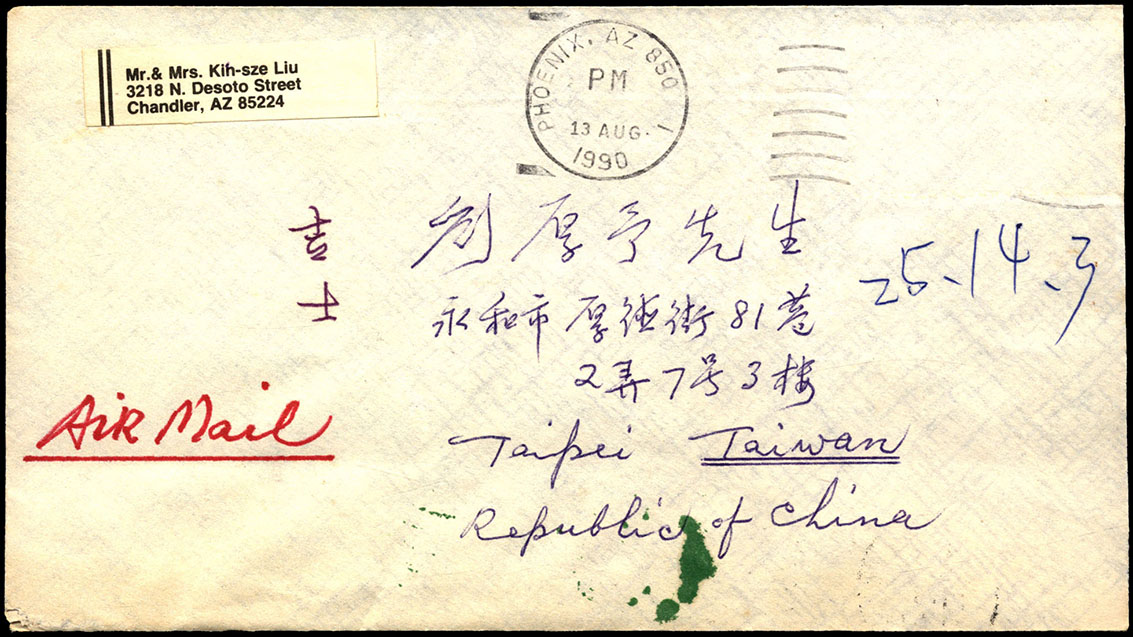 Mr.& Mrs. Kih-sze Liu
3218 N. Desoto Street
Chandler, AZ 85224
PHOENIX, AZ 850 1
PM
13 AUG.
1990
刘厚予先生
25、14、3
永和市厚德街81巷
2弄7号3楼
Air Mail
Taipei Taiwan
Republic of China